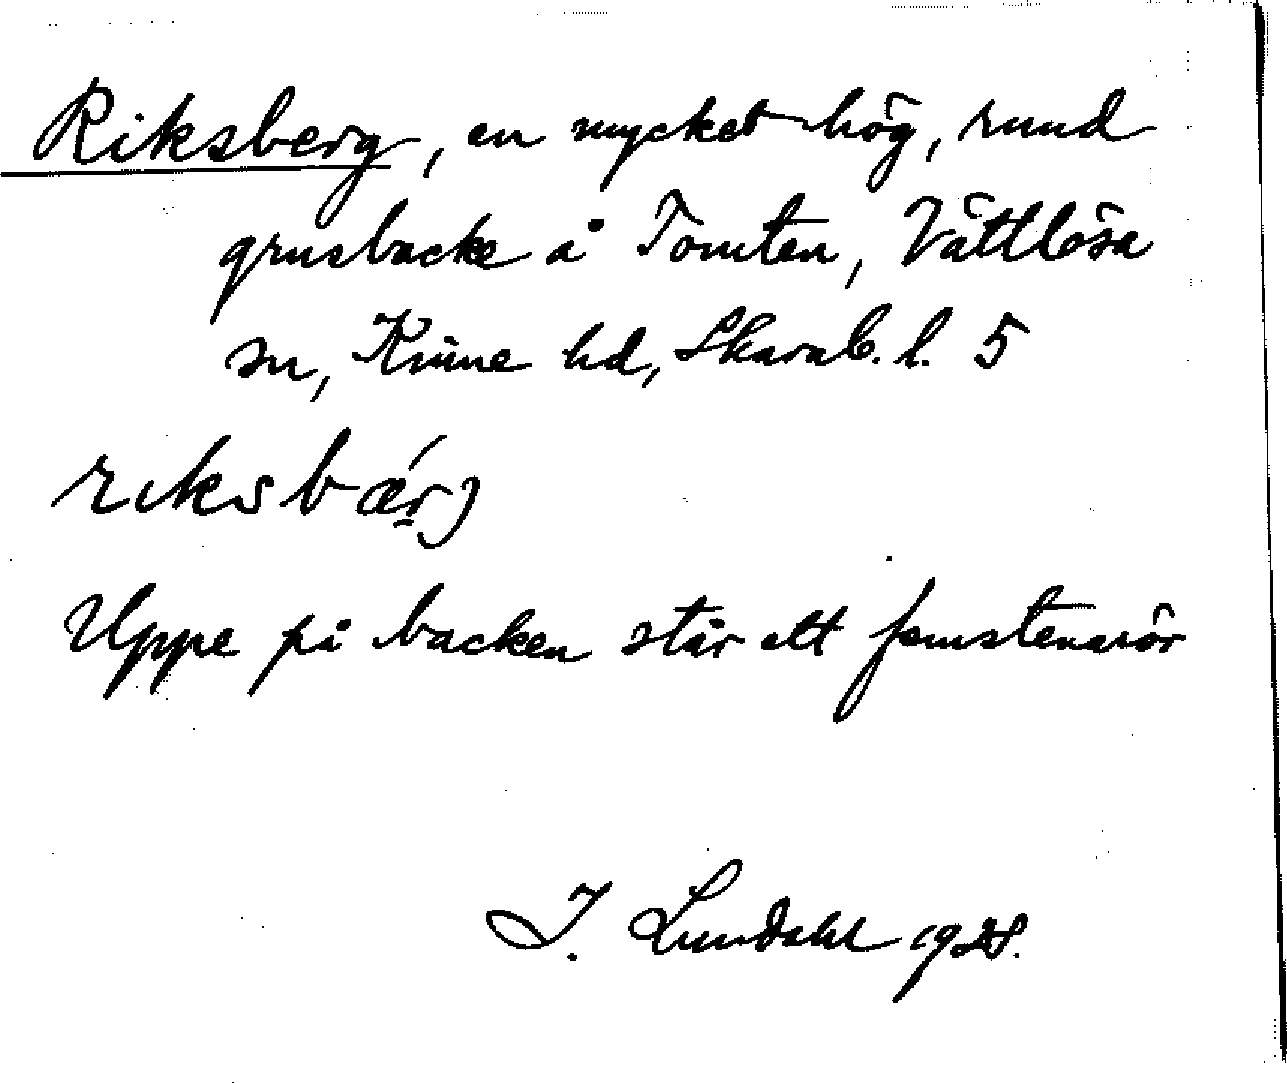 Riksberg, en mycket hög, rund
grusbacke å Tomten, Vättlösa
sn, Kinne hd, Skarab. l. 5
rıksbæŕ̲j
Uppe på backen står ett femstenarör
I. Lundahl 1928.